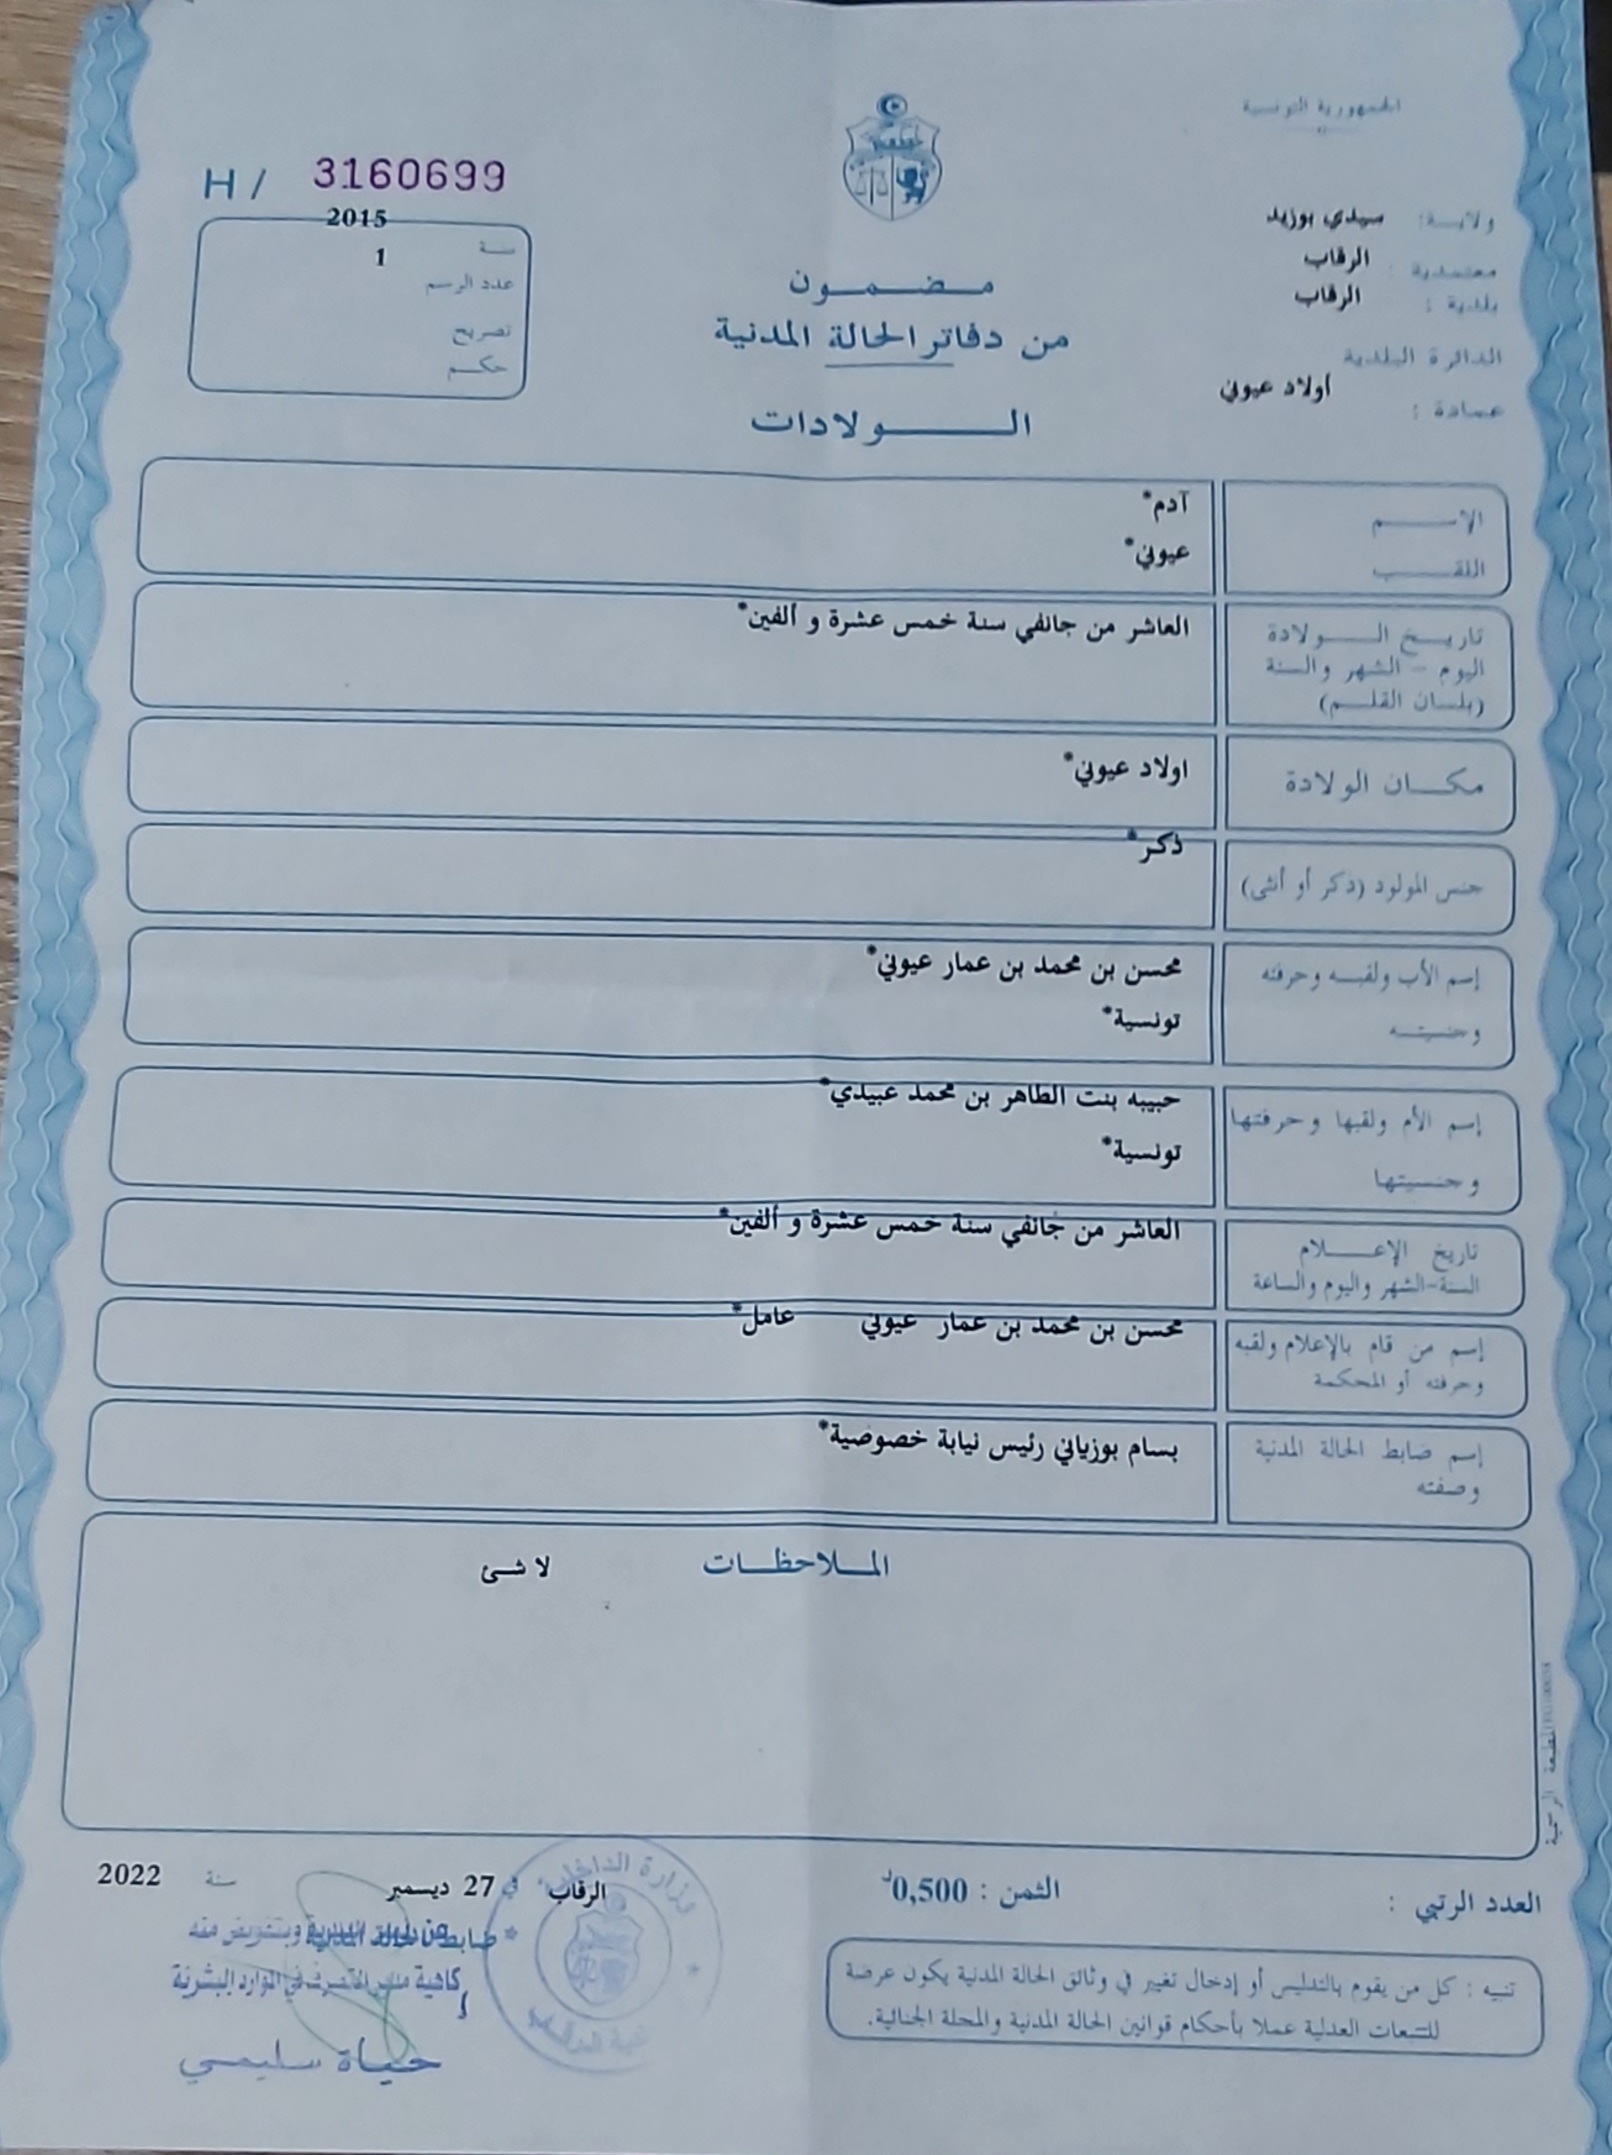 الجمهورية التونسية
H / 3160699
ولايـــة: سيدي بوزيد
معتمدية : الرقاب
بلدية : الرقاب
الدائرة البلدية
عمادة : أولاد عيوني
سنـــة 2015
عدد الرسم 1
تصريح
حكـــم
مــضــمــون
من دفاتر الحالة المدنية
الـــــولادات
الإســـــم آدم*
اللقـــــب عيوني*
تاريــخ الـــــولادة العاشر من جانفي سنة خمس عشرة و ألفين*
اليوم - الشهر والسنة
(بلسان القلـــم)
مكـــان الولادة اولاد عيوني*
جنس المولود (ذكر أو أنثى) ذكر*
إسم الأب ولقبــه وحرفته محسن بن محمد بن عمار عيوني*
وجنسيتـــه تونسية*
إسم الأم ولقبها وحرفتها حبيبه بنت الطاهر بن محمد عبيدي*
وجنسيتها تونسية*
تاريخ الإعـــــلام العاشر من جانفي سنة خمس عشرة و ألفين*
السنة-الشهر واليوم والساعة
إسم من قام بالإعلام ولقبه محسن بن محمد بن عمار عيوني عامل*
وحرفته أو المحكمة
إسم ضابط الحالة المدنية بسام بوزياني رئيس نيابة خصوصية*
وصفته
المـــلاحظـــات لا شئ
المطبعة الرسمية
العدد الرتبي :
الثمن : 0,500د
الرقاب في 27 ديسمبر سنة 2022
وزارة الداخلية
ضابط الحالة المدنية
وبتفويض منه
كاهية مدير التصرف في الموارد البشرية
حياة سليمي
تنبيه : كل من يقوم بالتدليس أو إدخال تغيير في وثائق الحالة المدنية يكون عرضة
للتتبعات العدلية عملا بأحكام قوانين الحالة المدنية والمجلة الجنائية.